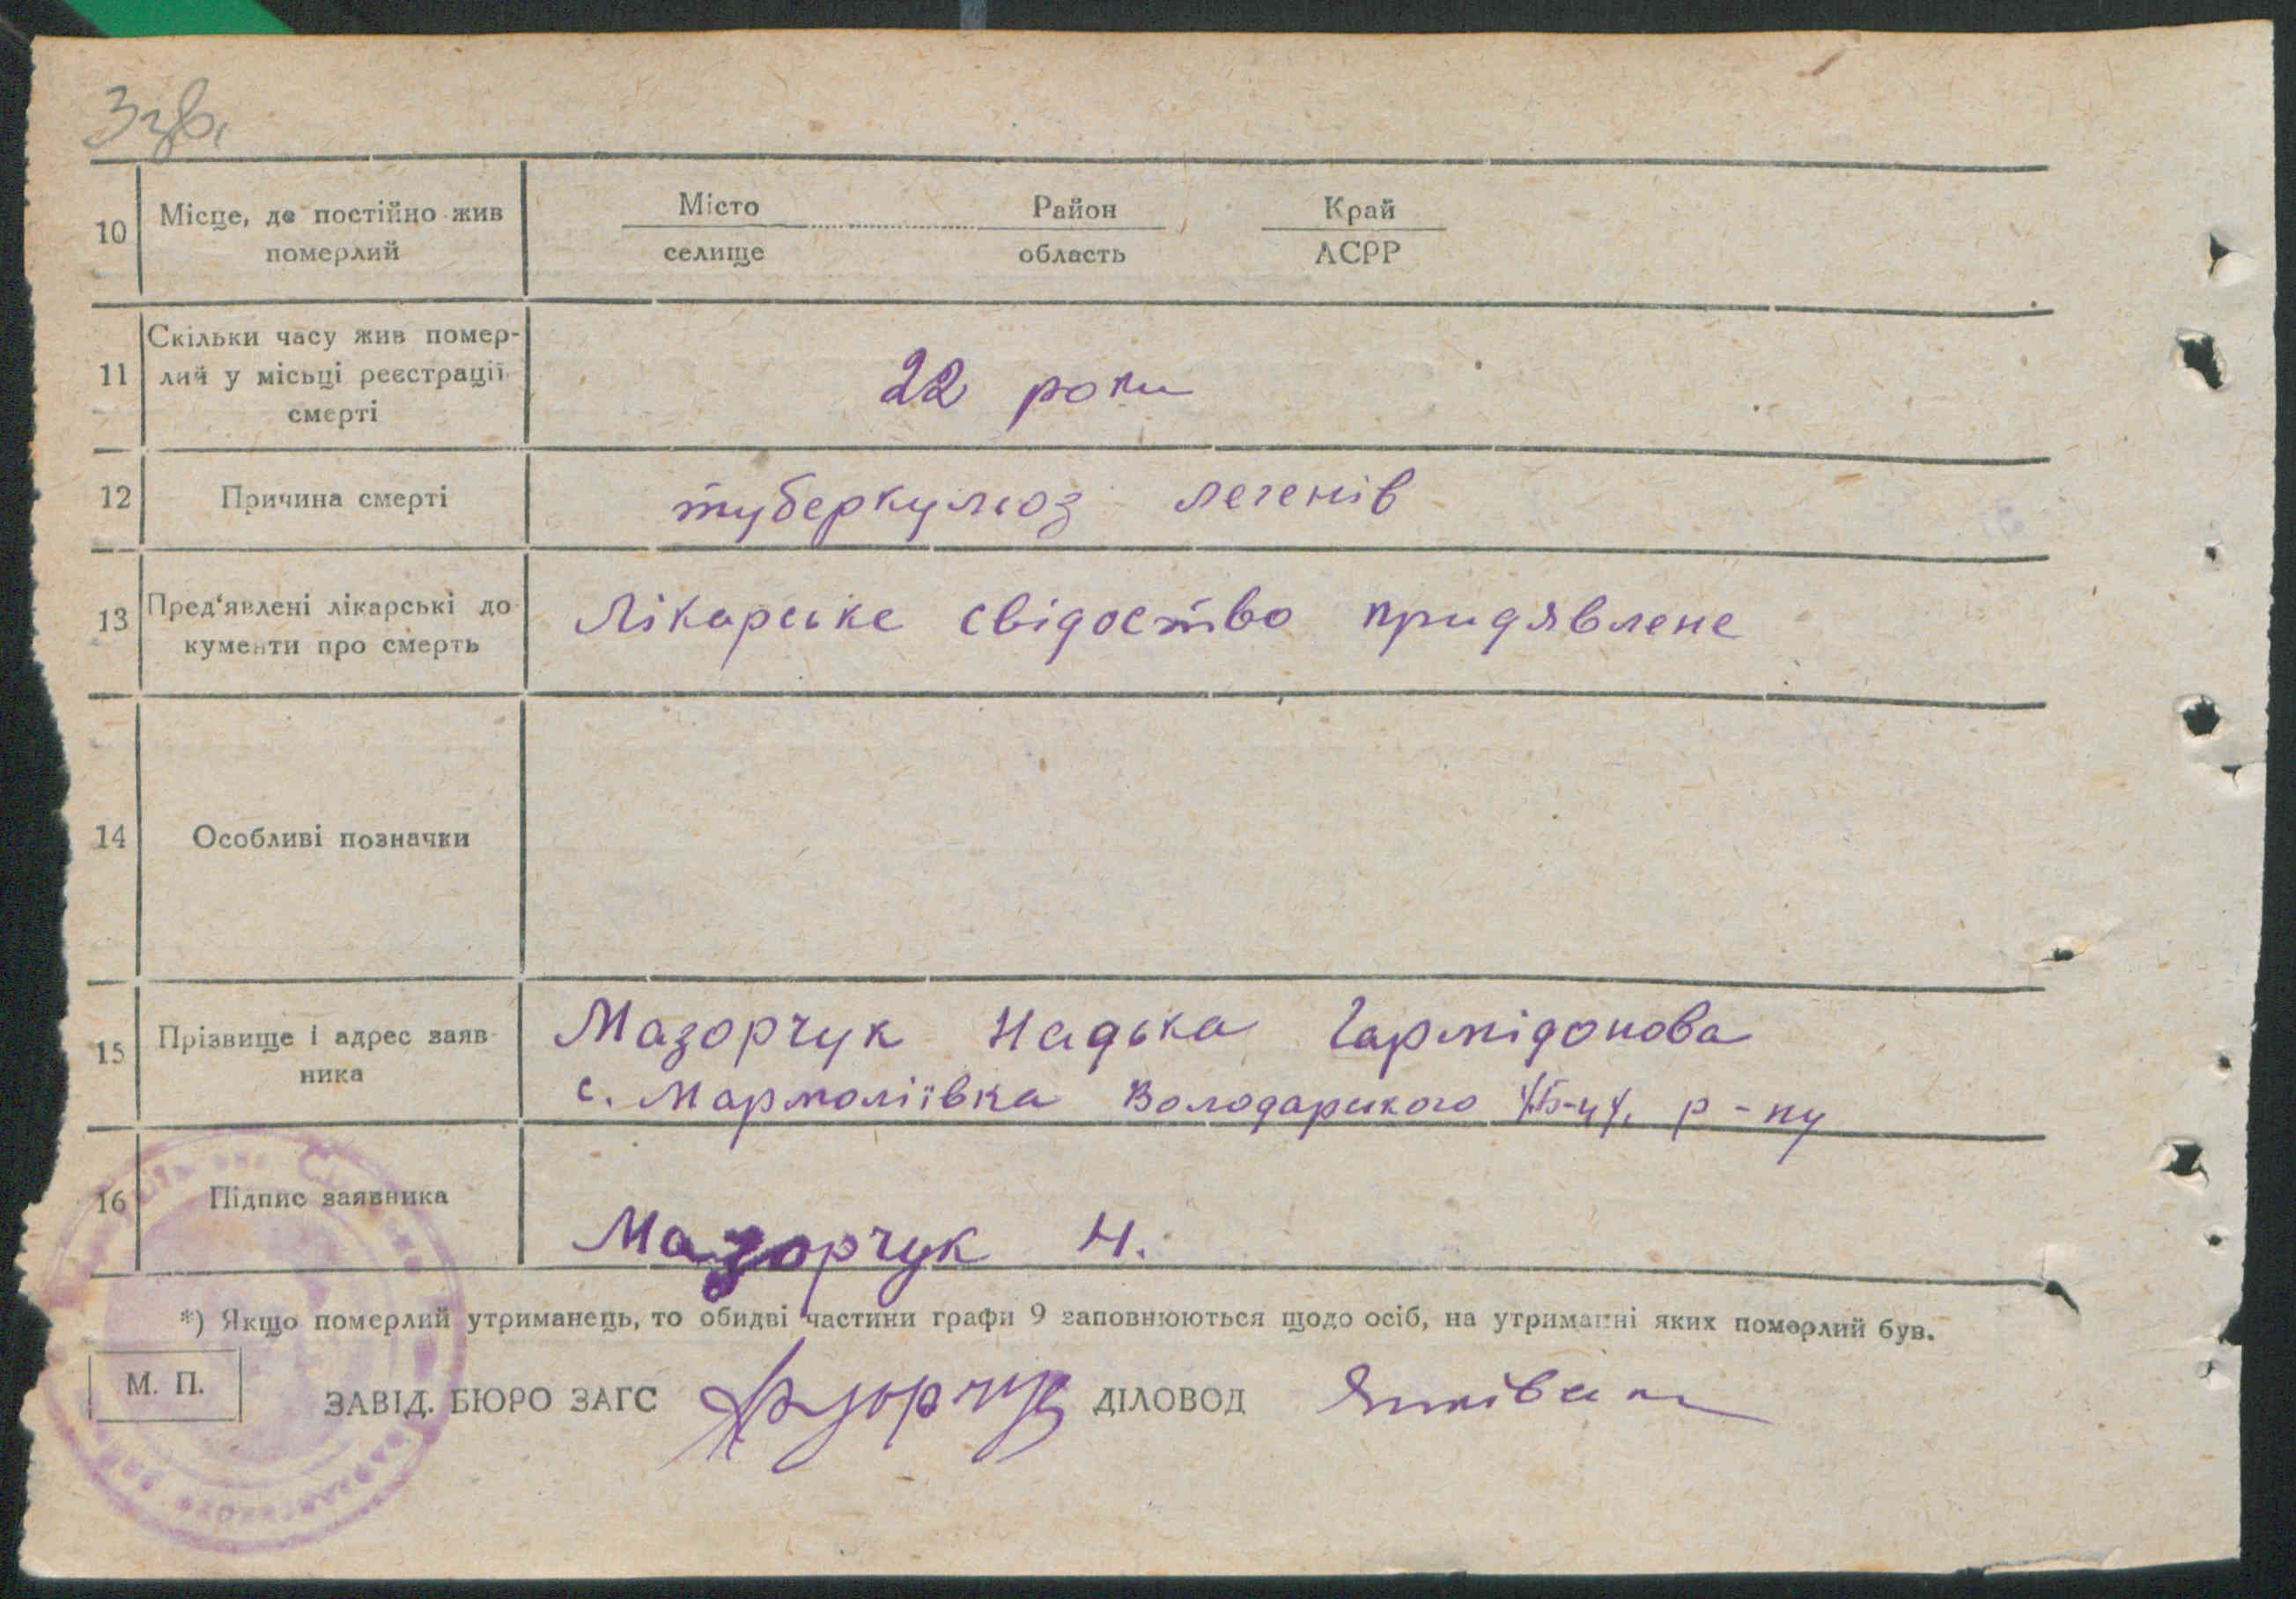 10 Місце, де постійно жив померлий
Місто Район Край
селище область АСРР
11 Скільки часу жив помер-
лий у місьці реєстрації
смерті
22 роки
12 Причина смерті туберкульоз легенів
13 Пред'явлені лікарські до
кументи про смерть
Лікарське свідоство придявлене
14 Особливі позначки
15 Прізвище і адрес заяв
ника
Мазорчук Надька
с. Мармоліївка Володарського р-ну
16 Підпис заявника
Мазорчук Н.
*) Якщо померлий утриманець, то обидві частини графи 9 заповнюються щодо осіб, на утриманні яких померлий був.
М. П. ЗАВІД. БЮРО ЗАГС ДІЛОВОД